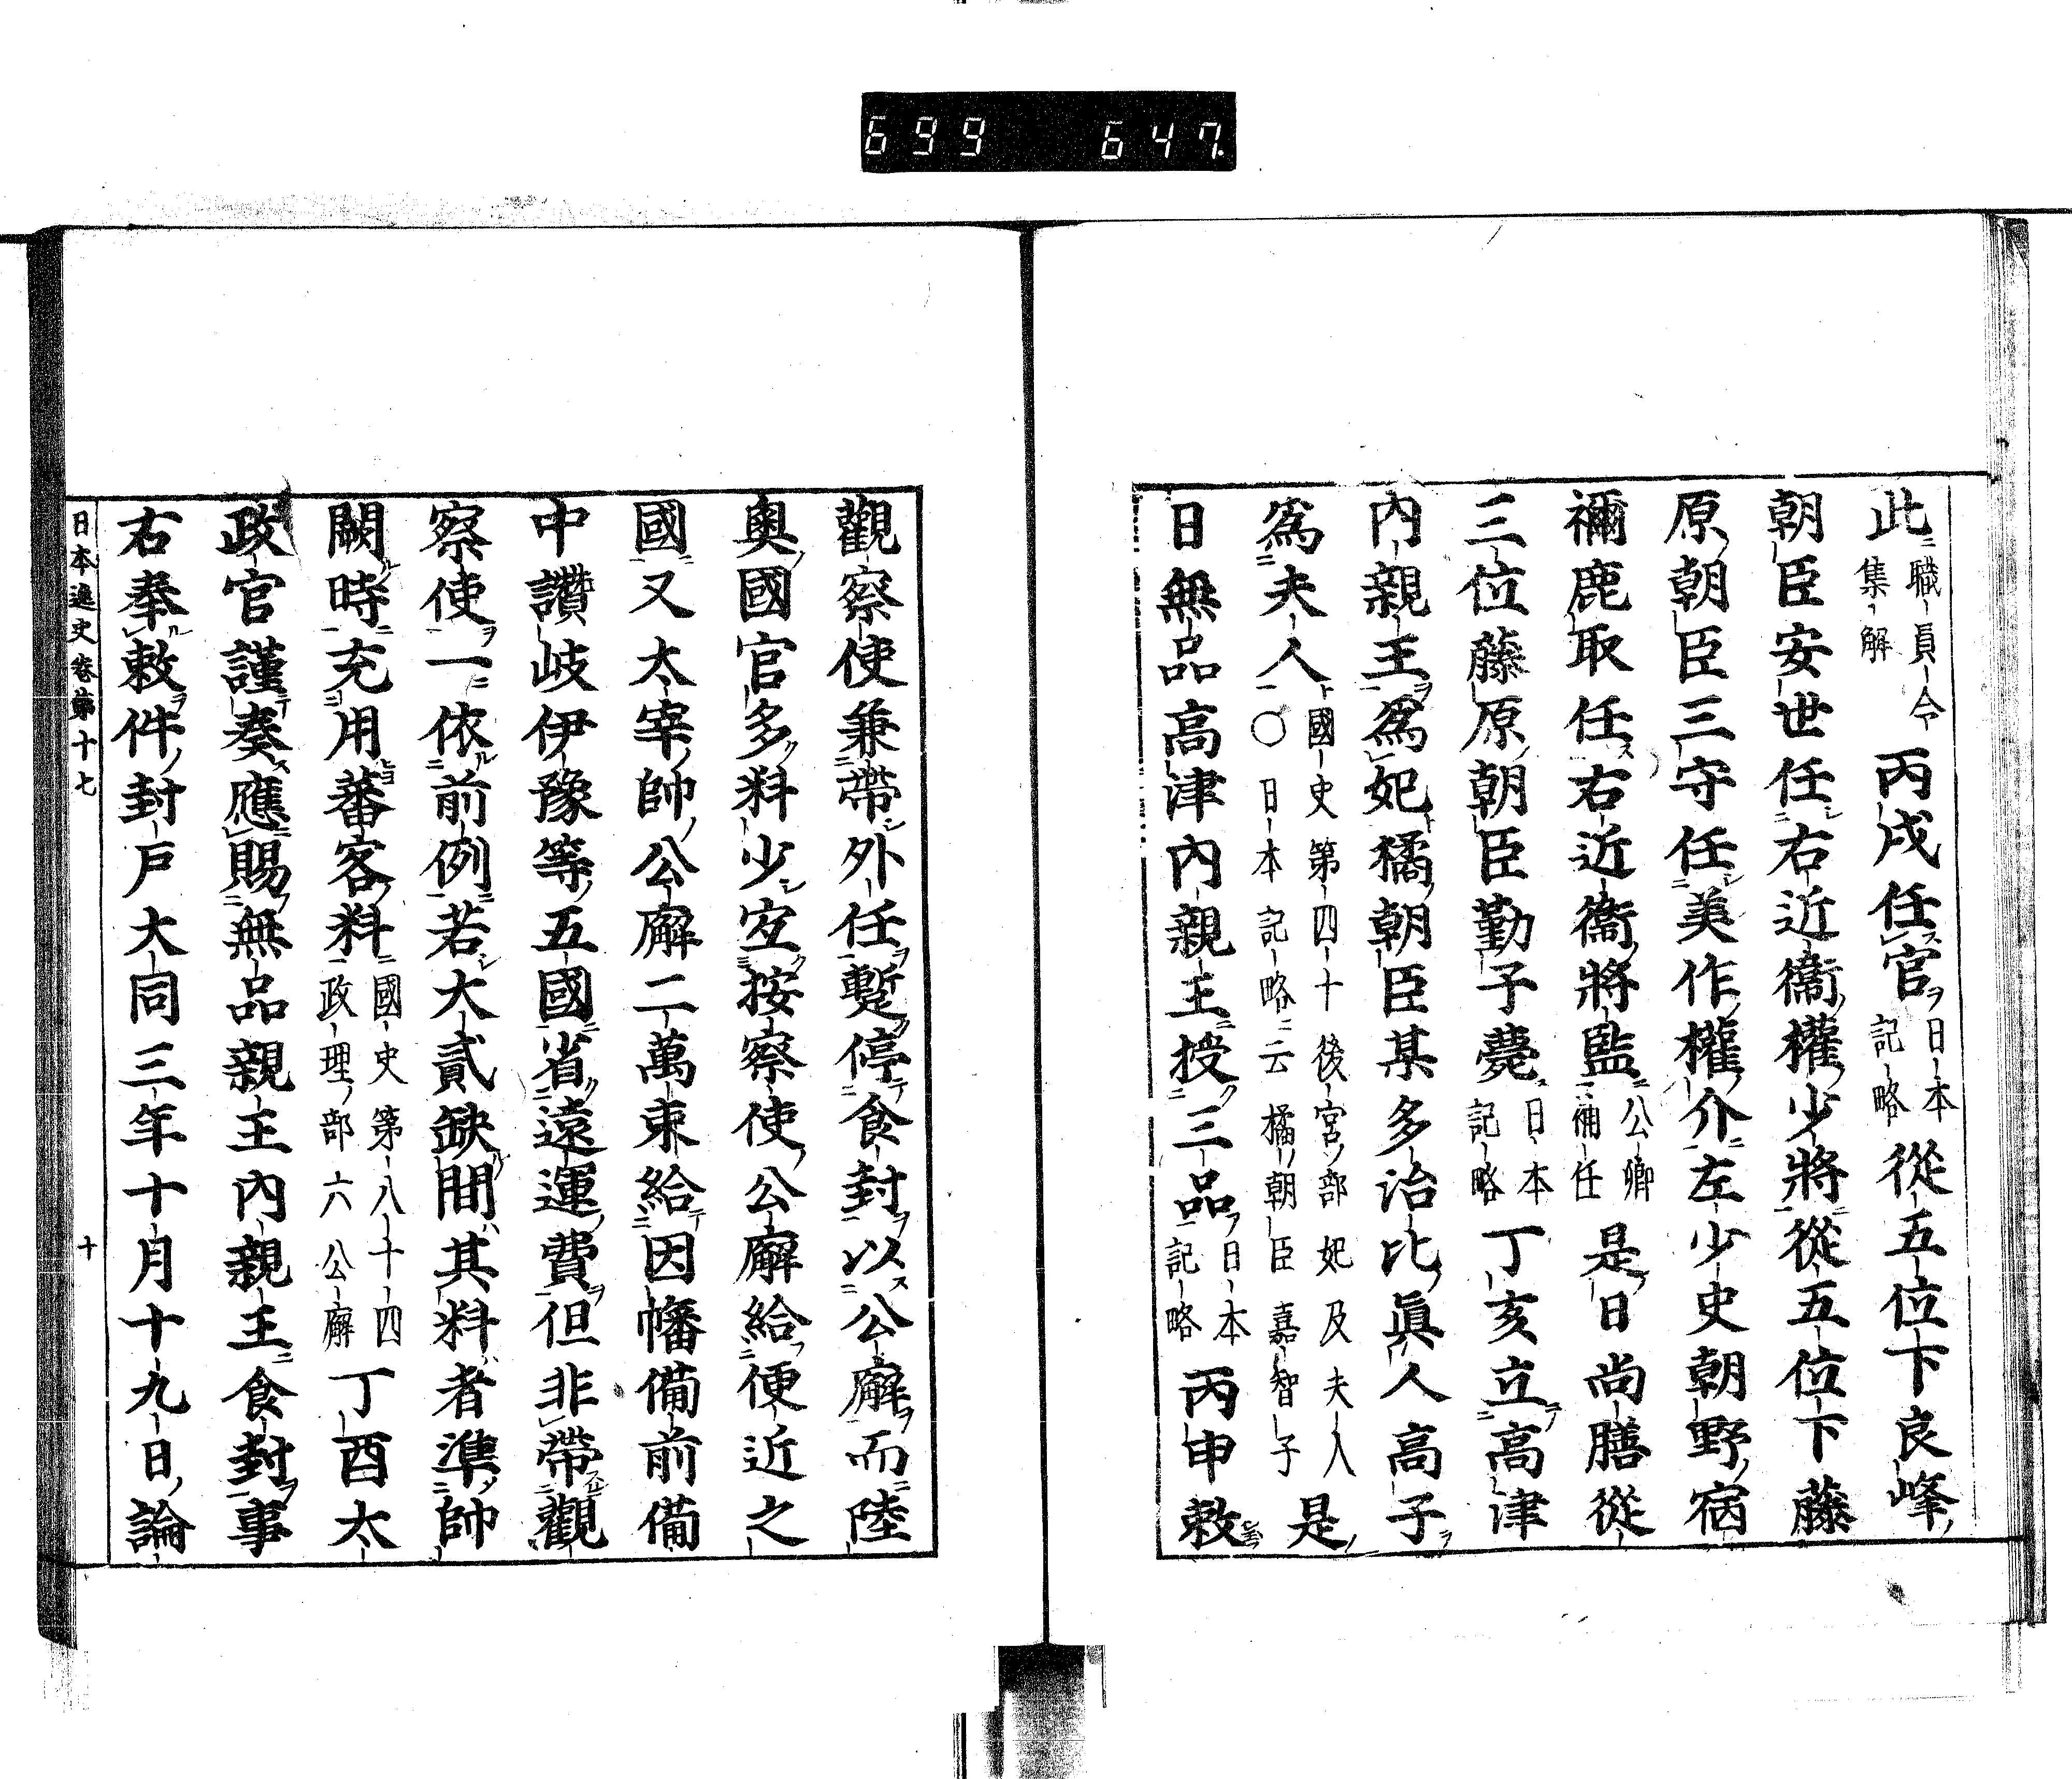 699 647
此職員令集解丙戌任官日本記略從五位下良峰
朝臣安世任右近衞權少將從五位下藤
原朝臣三守任美作權介左少史朝野宿
禰鹿取任右近衞將監公卿補任是日尚膳從
三位藤原朝臣勤子薨日本記略丁亥立高津
内親王爲妃橘朝臣某多治比眞人高子
爲夫人國史第四十後宮部妃及夫人〇日本記略云橘朝臣嘉智子是
日無品高津内親王授三品日本記略丙申敕
觀察使兼帶外任蹔停食封以公廨而陸
奧國官多料少宜按察使公廨給便近之
國又太宰帥公廨二萬束給因幡備前備
中讚岐伊豫等五國省遠運費但非帶觀
察使一依前例若大貳缺間其料者準帥
闕時充用蕃客料國史第八十四政理部六公廨丁酉太
政官謹奏應賜無品親王内親王食封事
右奉敕件封戸大同三年十月十九日論
日本逸史卷第十七 十